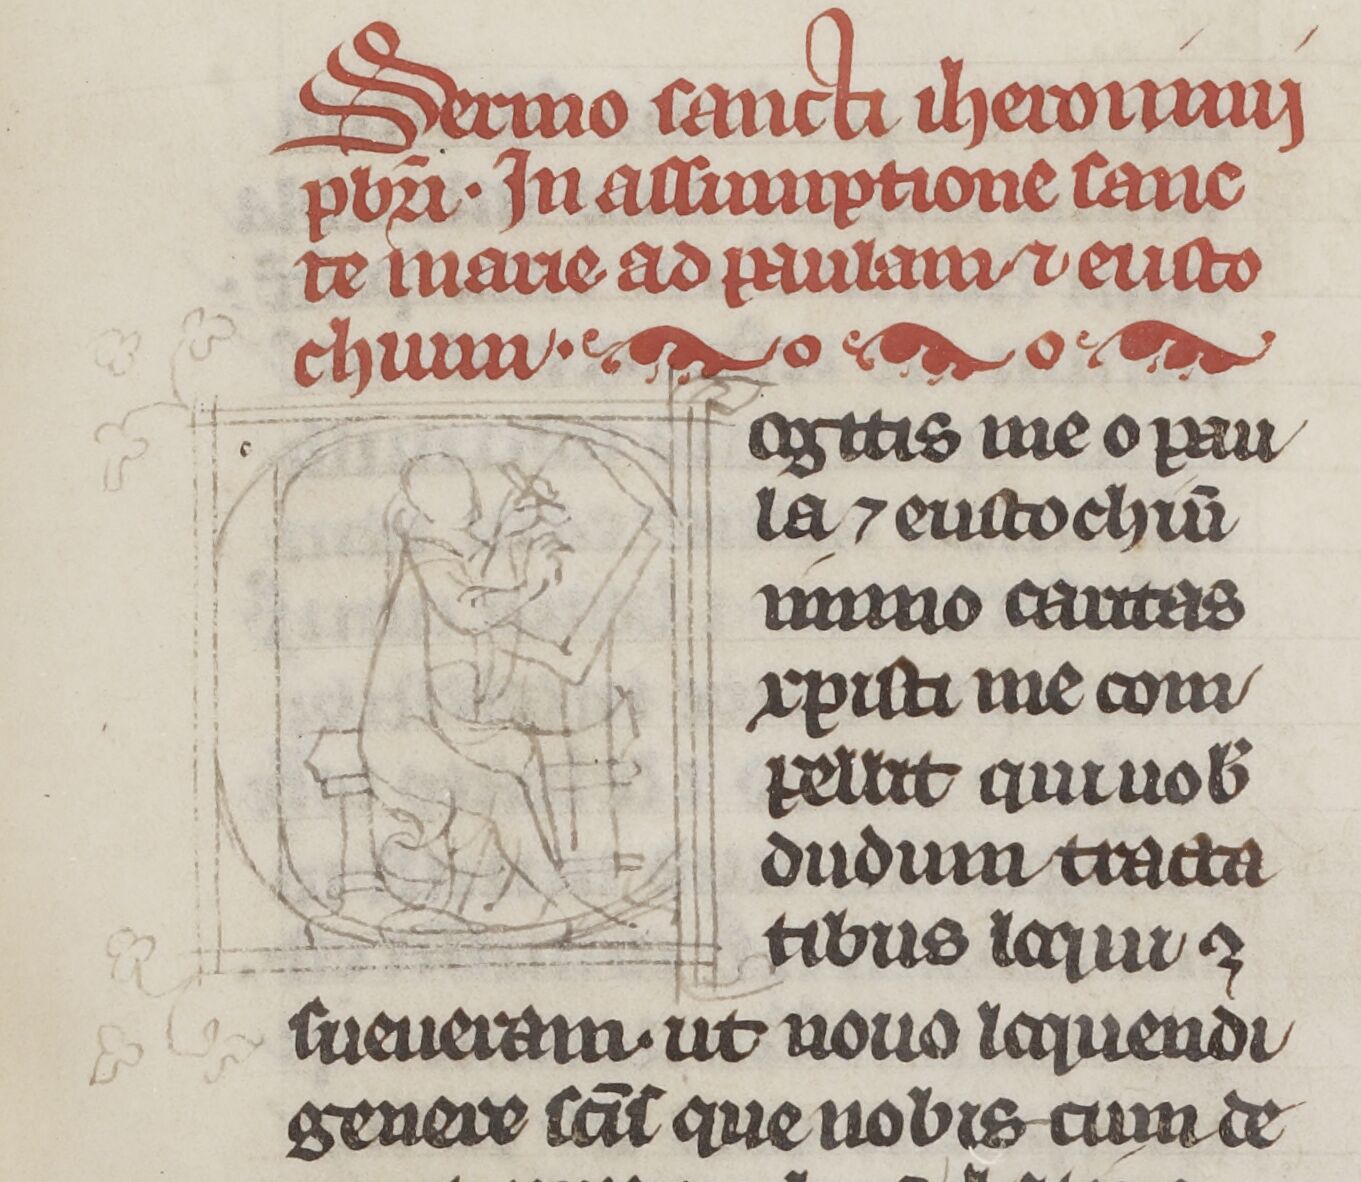 Sermo sancti iheronimi
pbri̅. In assumptione sanc
te marie ad paulam ⁊ eusto
chium.
c
ogitis me o pau
la ⁊ eustochiu̅
immo caritas
xpisti me com
pellit qui uob̅
dudum tracta
tibus loqui ꝯ
sueueram. ut nouo loquendi
genere sc̅is que nobis cum de